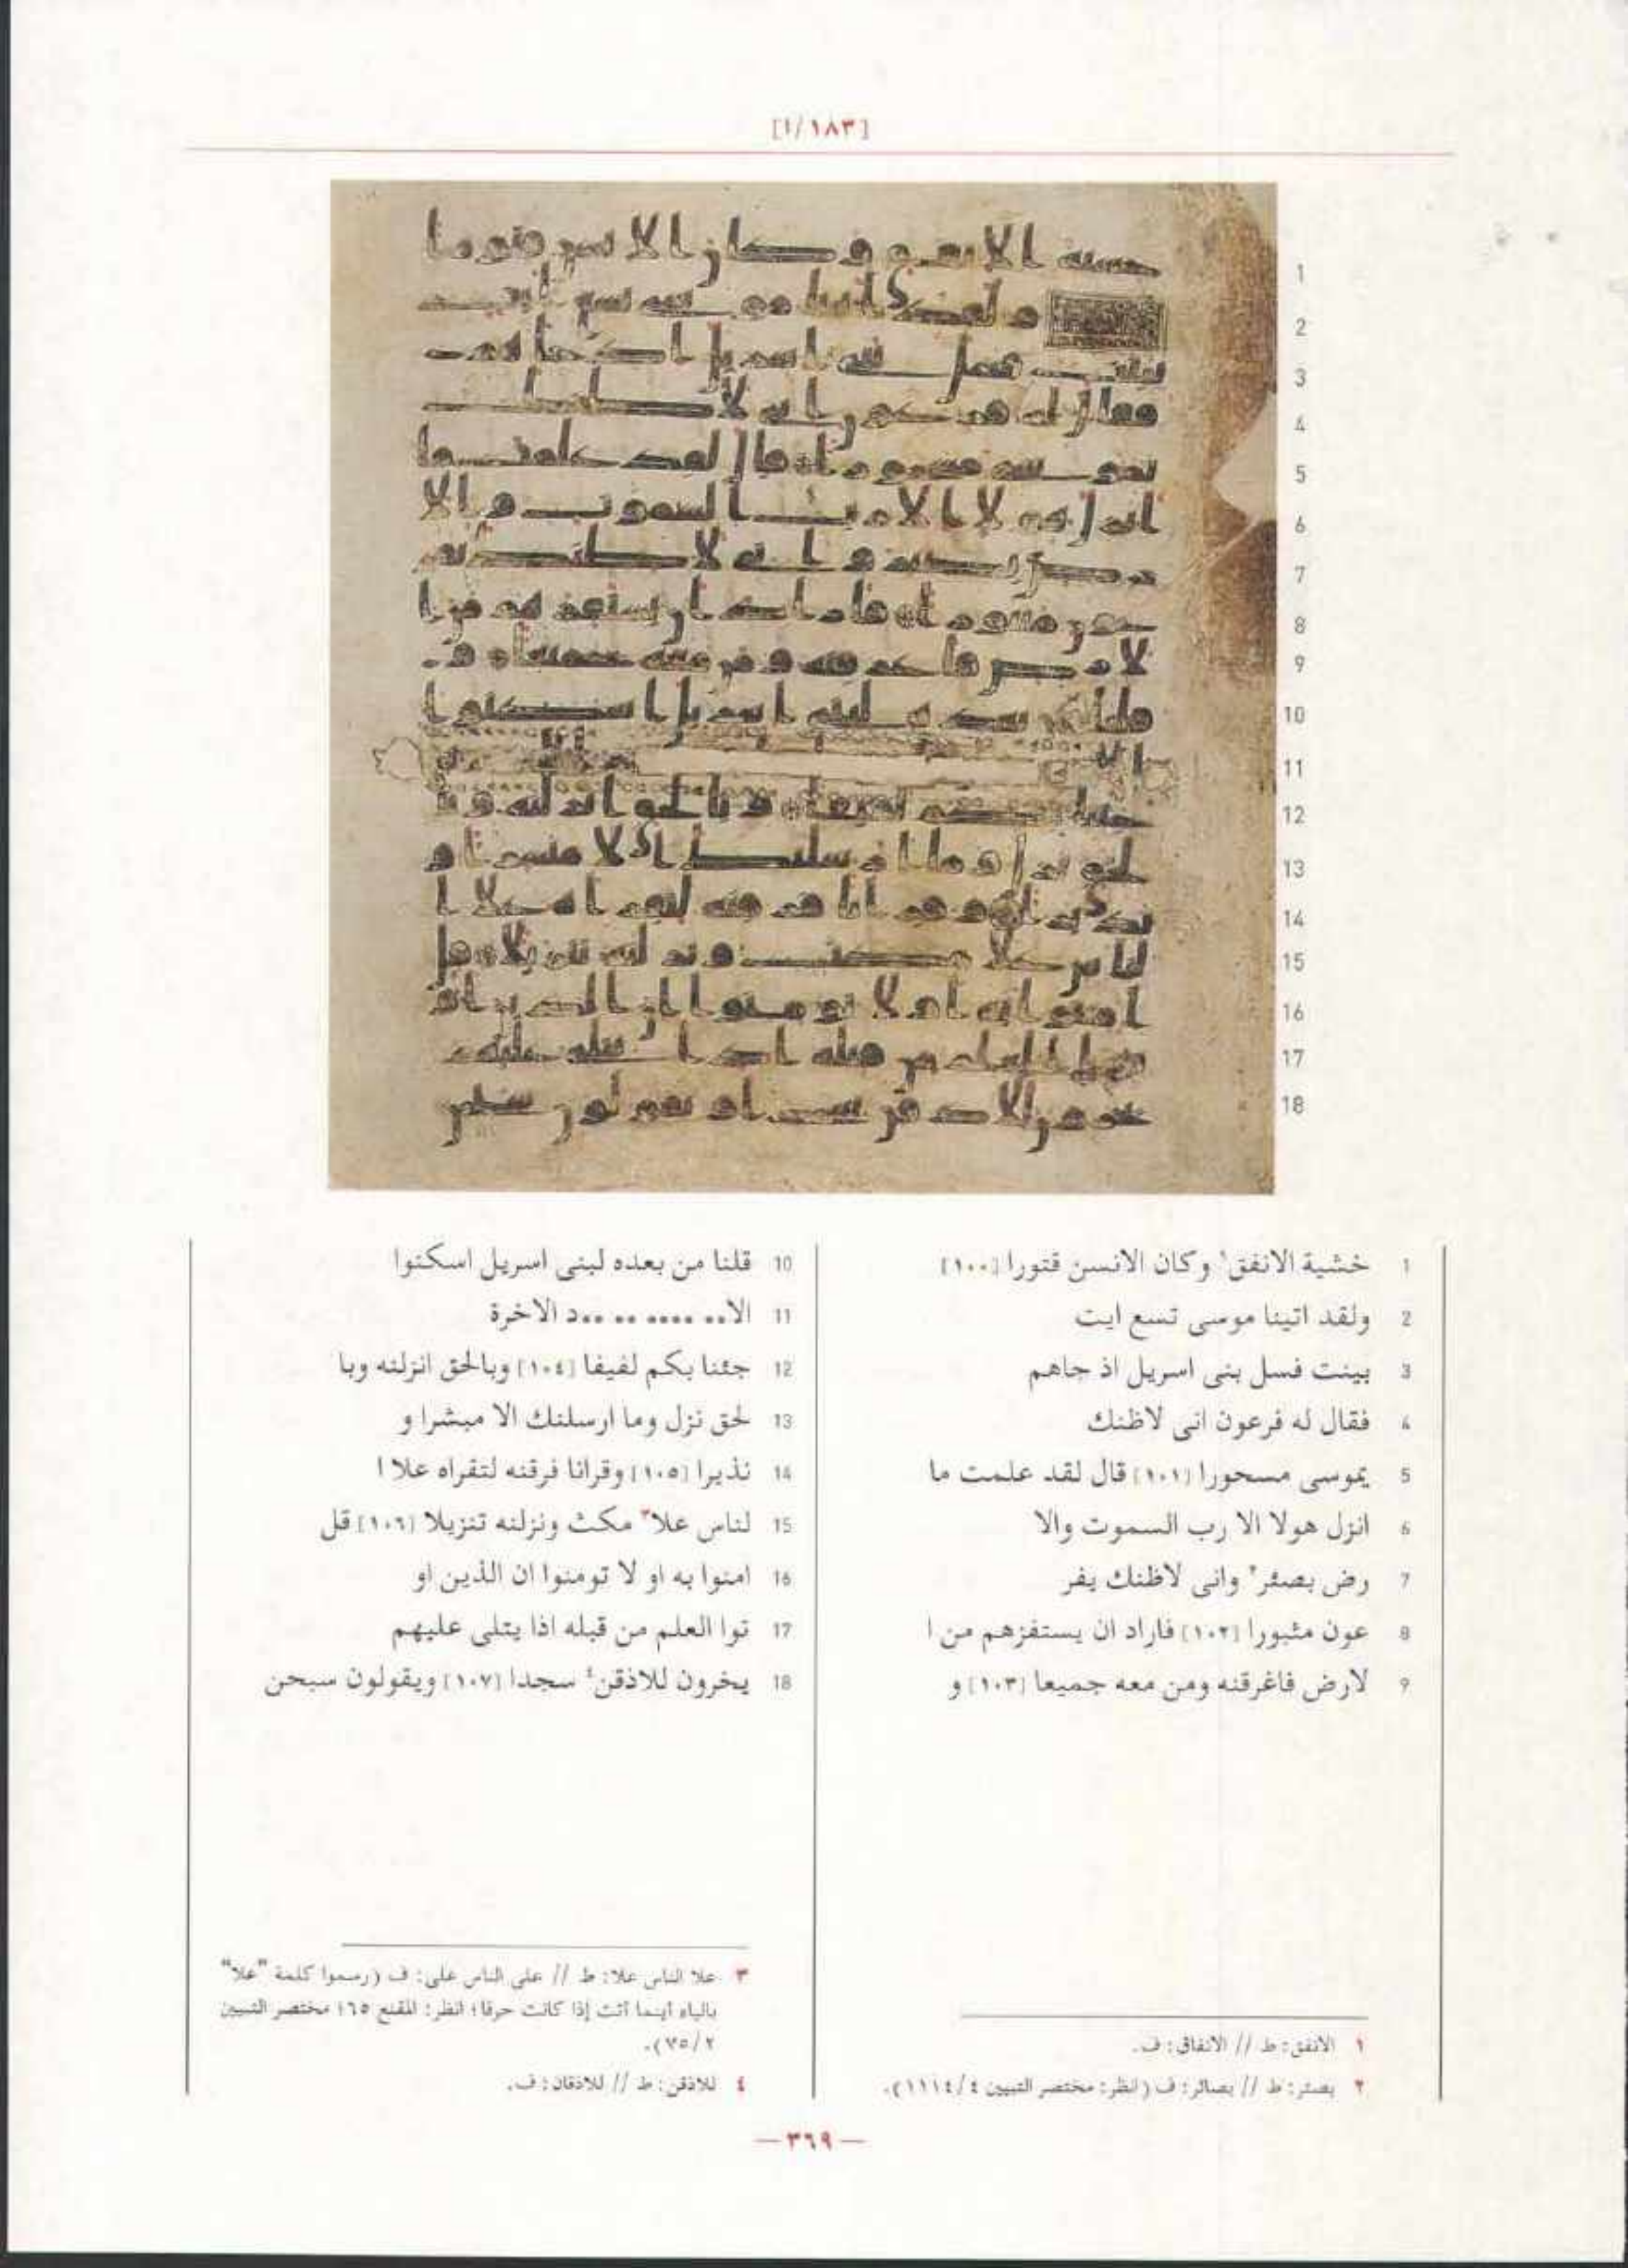 [١٨٣/ا]
1 خشية الانفق١ وكان الانسن قتورا [١٠٠]
2 ولقد اتينا موسى تسع ايت
3 بينت فسل بنى اسريل اذ جاهم
4 فقال له فرعون انى لاظنك
5 يموسى مسحورا [١٠١] قال لقد علمت ما
6 انزل هولا الا رب السموت والا
7 رض بصئر٢ وانى لاظنك يفر
8 عون مثبورا [١٠٢] فاراد ان يستفزهم من ا
9 لارض فاغرقنه ومن معه جميعا [١٠٣] و
10 قلنا من بعده لبنى اسريل اسكنوا
11 الا.. .... .. ..د الاخرة
12 جئنا بكم لفيفا [١٠٤] وبالحق انزلنه وبا
13 لحق نزل وما ارسلنك الا مبشرا و
14 نذيرا [١٠٥] وقرانا فرقنه لتقراه علا ا
15 لناس علا٣ مكث ونزلنه تنزيلا [١٠٦] قل
16 امنوا به او لا تومنوا ان الذين او
17 توا العلم من قبله اذا يتلى عليهم
18 يخرون للاذقن٤ سجدا [١٠٧] ويقولون سبحن
١ الانفق: ط // الانفاق: ف.
٢ بصئر: ط // بصائر: ف (انظر: مختصر التبيين ٤/١١١٤).
٣ علا الناس علا: ط // على الناس على: ف (رسموا كلمة "علا"
بالياء أينما أتت إذا كانت حرفا؛ انظر: المقنع ٦٥؛ مختصر التبيين
٢/٧٥).
٤ للاذقن: ط // للاذقان: ف.
— ٣٦٩ —